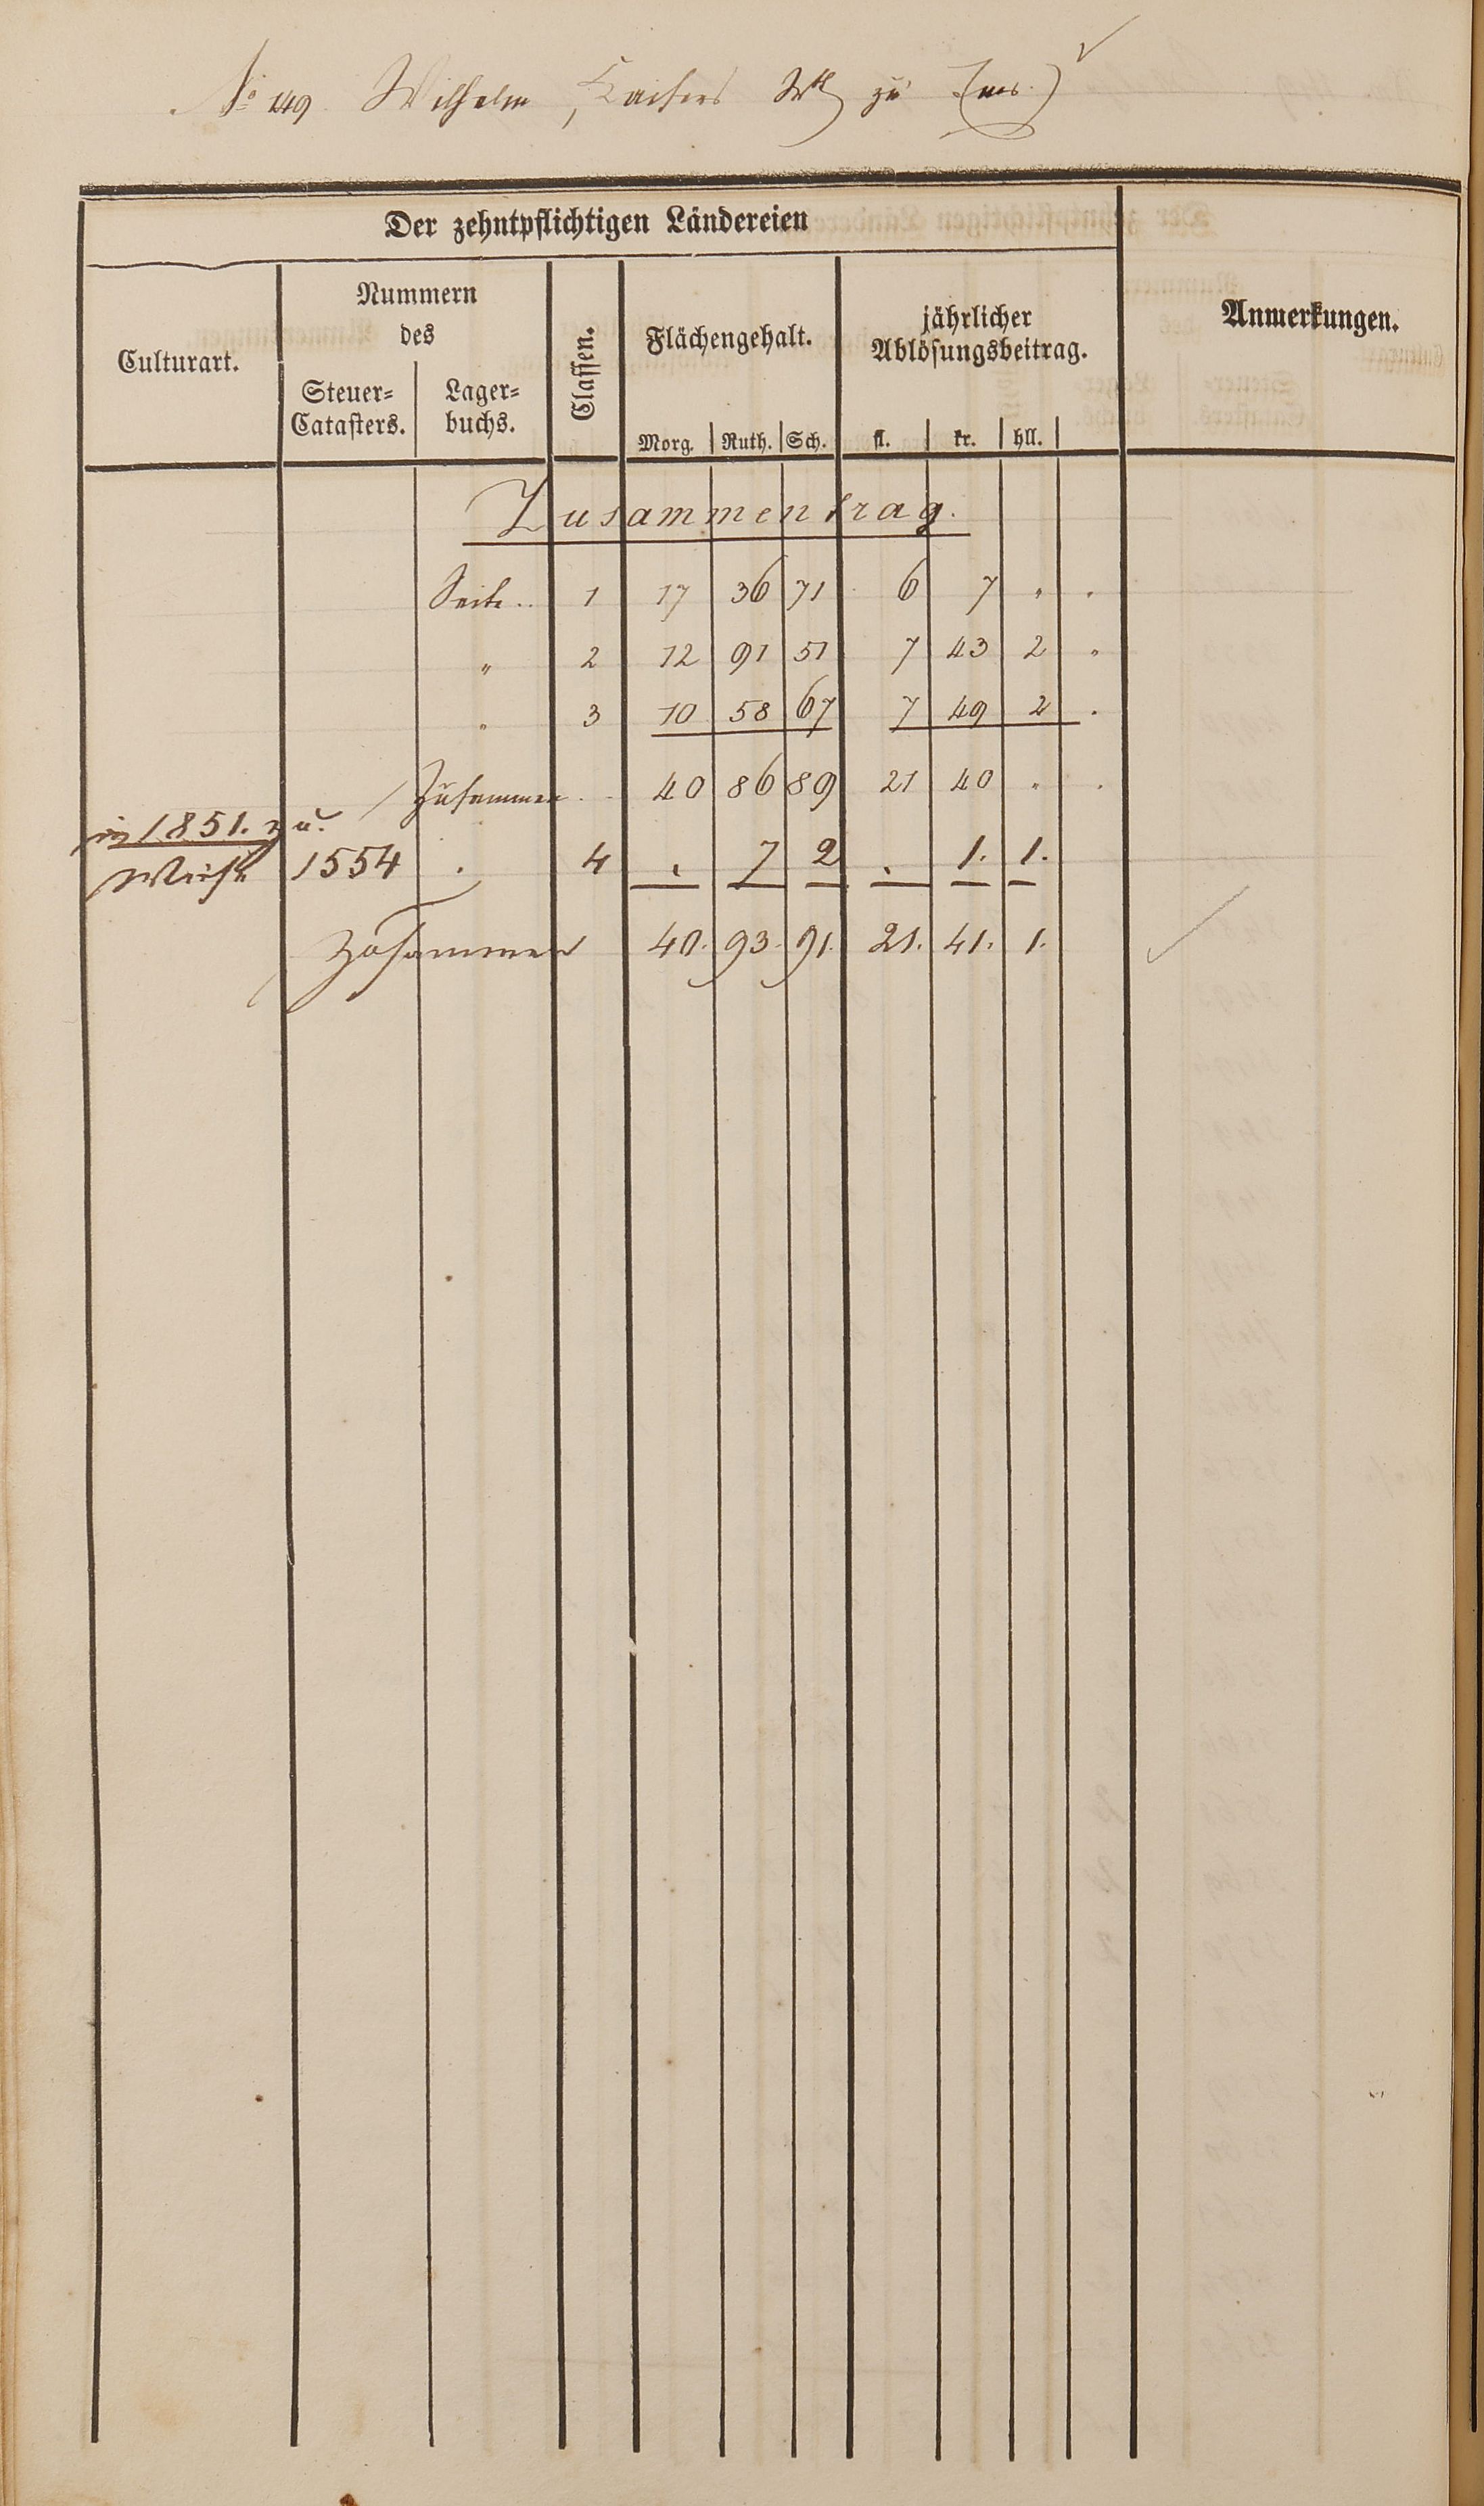 No 149 Wilhelm, Kaisers Wb zu Ems.
Der zehntpflichtigen Ländereien
Culturart.
Nummern
des
Steuer=
Catasters.
Lager=
buchs.
Classen.
Flächengehalt.
Morg. Ruth. Sch.
jährlicher
Ablösungsbeitrag.
fl. kr. hll.
Anmerkungen.
Zusammentrag.
Seite .. 1 17 36 71 6 7 " .
" 2 12 91 51 7 43 2 "
" 3 10 58 67 7 49 2 .
Zusammen . . 40 86 89 21 40 " .
in 1851. zu.
Wiese 1554 . 4 . 7 2 . 1. 1.
Zusammen 40. 93. 91. 21. 41. 1.